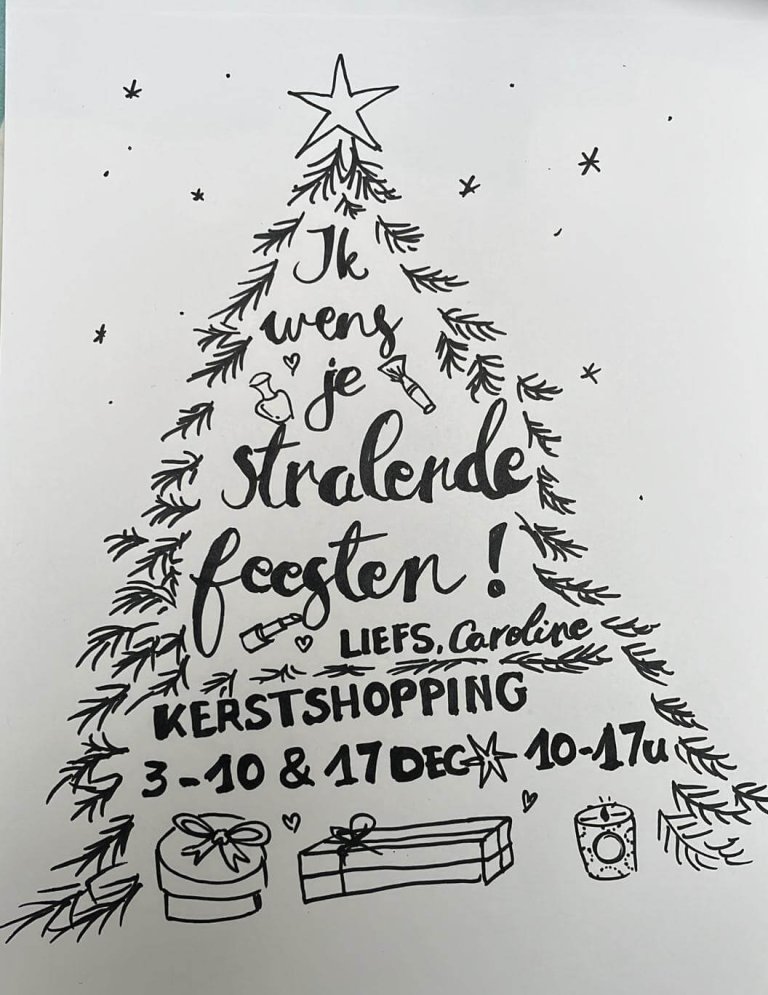 Ik
wens
je
stralende
feesten!
LIEFS, Caroline
KERSTSHOPPING
3-10 & 17 DEC 10-17u